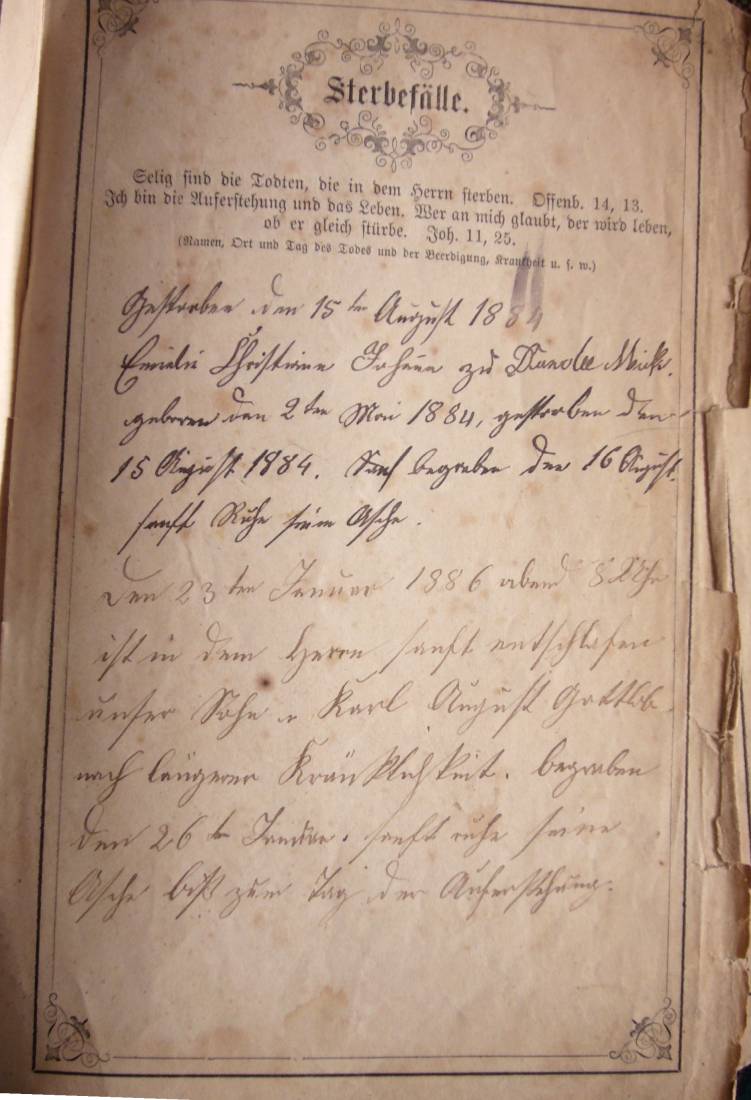 Sterbefälle.
Selig sind die Todten, die in dem Herrn sterben. Offenb. 14, 13.
Ich bin die Auferstehung und das Leben. Wer an mich glaubt, der wird leben,
ob er gleich stürbe. Joh. 11, 25.
(Namen, Ort und Tag des Todes und der Beerdigung, Krankheit u. s. w.)
Gestorben den 15ten August 1884
Emilie Christine Johann zu
geboren den 2ten Mai 1884, gestorben den
15 August 1884. begraben den 16 August.
sanft Ruhe sein Asche.
Den 23ten Januar 1886 abend 8 Uhr
ist in dem Herrn sanft entschlafen
unser Sohn Karl August Gottlob.
nach längerer Kränklichkeit. begraben
den 26te Januar. sanft ruhe seine
Asche biß zum Tag der Auferstehung.